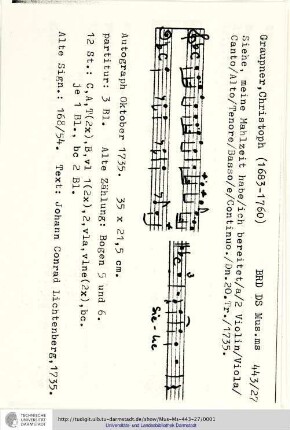 Graupner,Christoph (1683-1760) BRD DS Mus.ms 443/27
Siehe, meine Mahlzeit habe/ich bereitet/a/2 Violin/Viola/
Canto/Alto/Tenore/Basso/e/Continuo./Dn.20.Tr./1735.
Sie - he
Autograph Oktober 1735. 35 x 21,5 cm.
partitur: 3 Bl. Alte Zählung: Bogen 5 und 6.
12 St.: C,A,T(2x),B,vl 1(2x),2,vla,vlne(2x),bc.
je 1 Bl., bc 2 Bl.
Alte Sign.: 168/54. Text: Johann Conrad Lichtenberg,1735.
TECHNISCHE
UNIVERSITÄT
DARMSTADT
http://tudigit.ulb.tu-darmstadt.de/show/Mus-Ms-443-27/0001
Universitäts- und Landesbibliothek Darmstadt